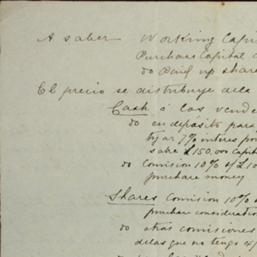 A saber Working Capi
Purchase Capital
do Paid up share
El precio se distribuye de la
Cash á los vende
do en depósito para
7% interes po
sobre £150.000 Capit
do Comision 10% s/£10
purchase money
Shares Comision 10%
purchase consideratio
do otras comisiones
de las que no tengo